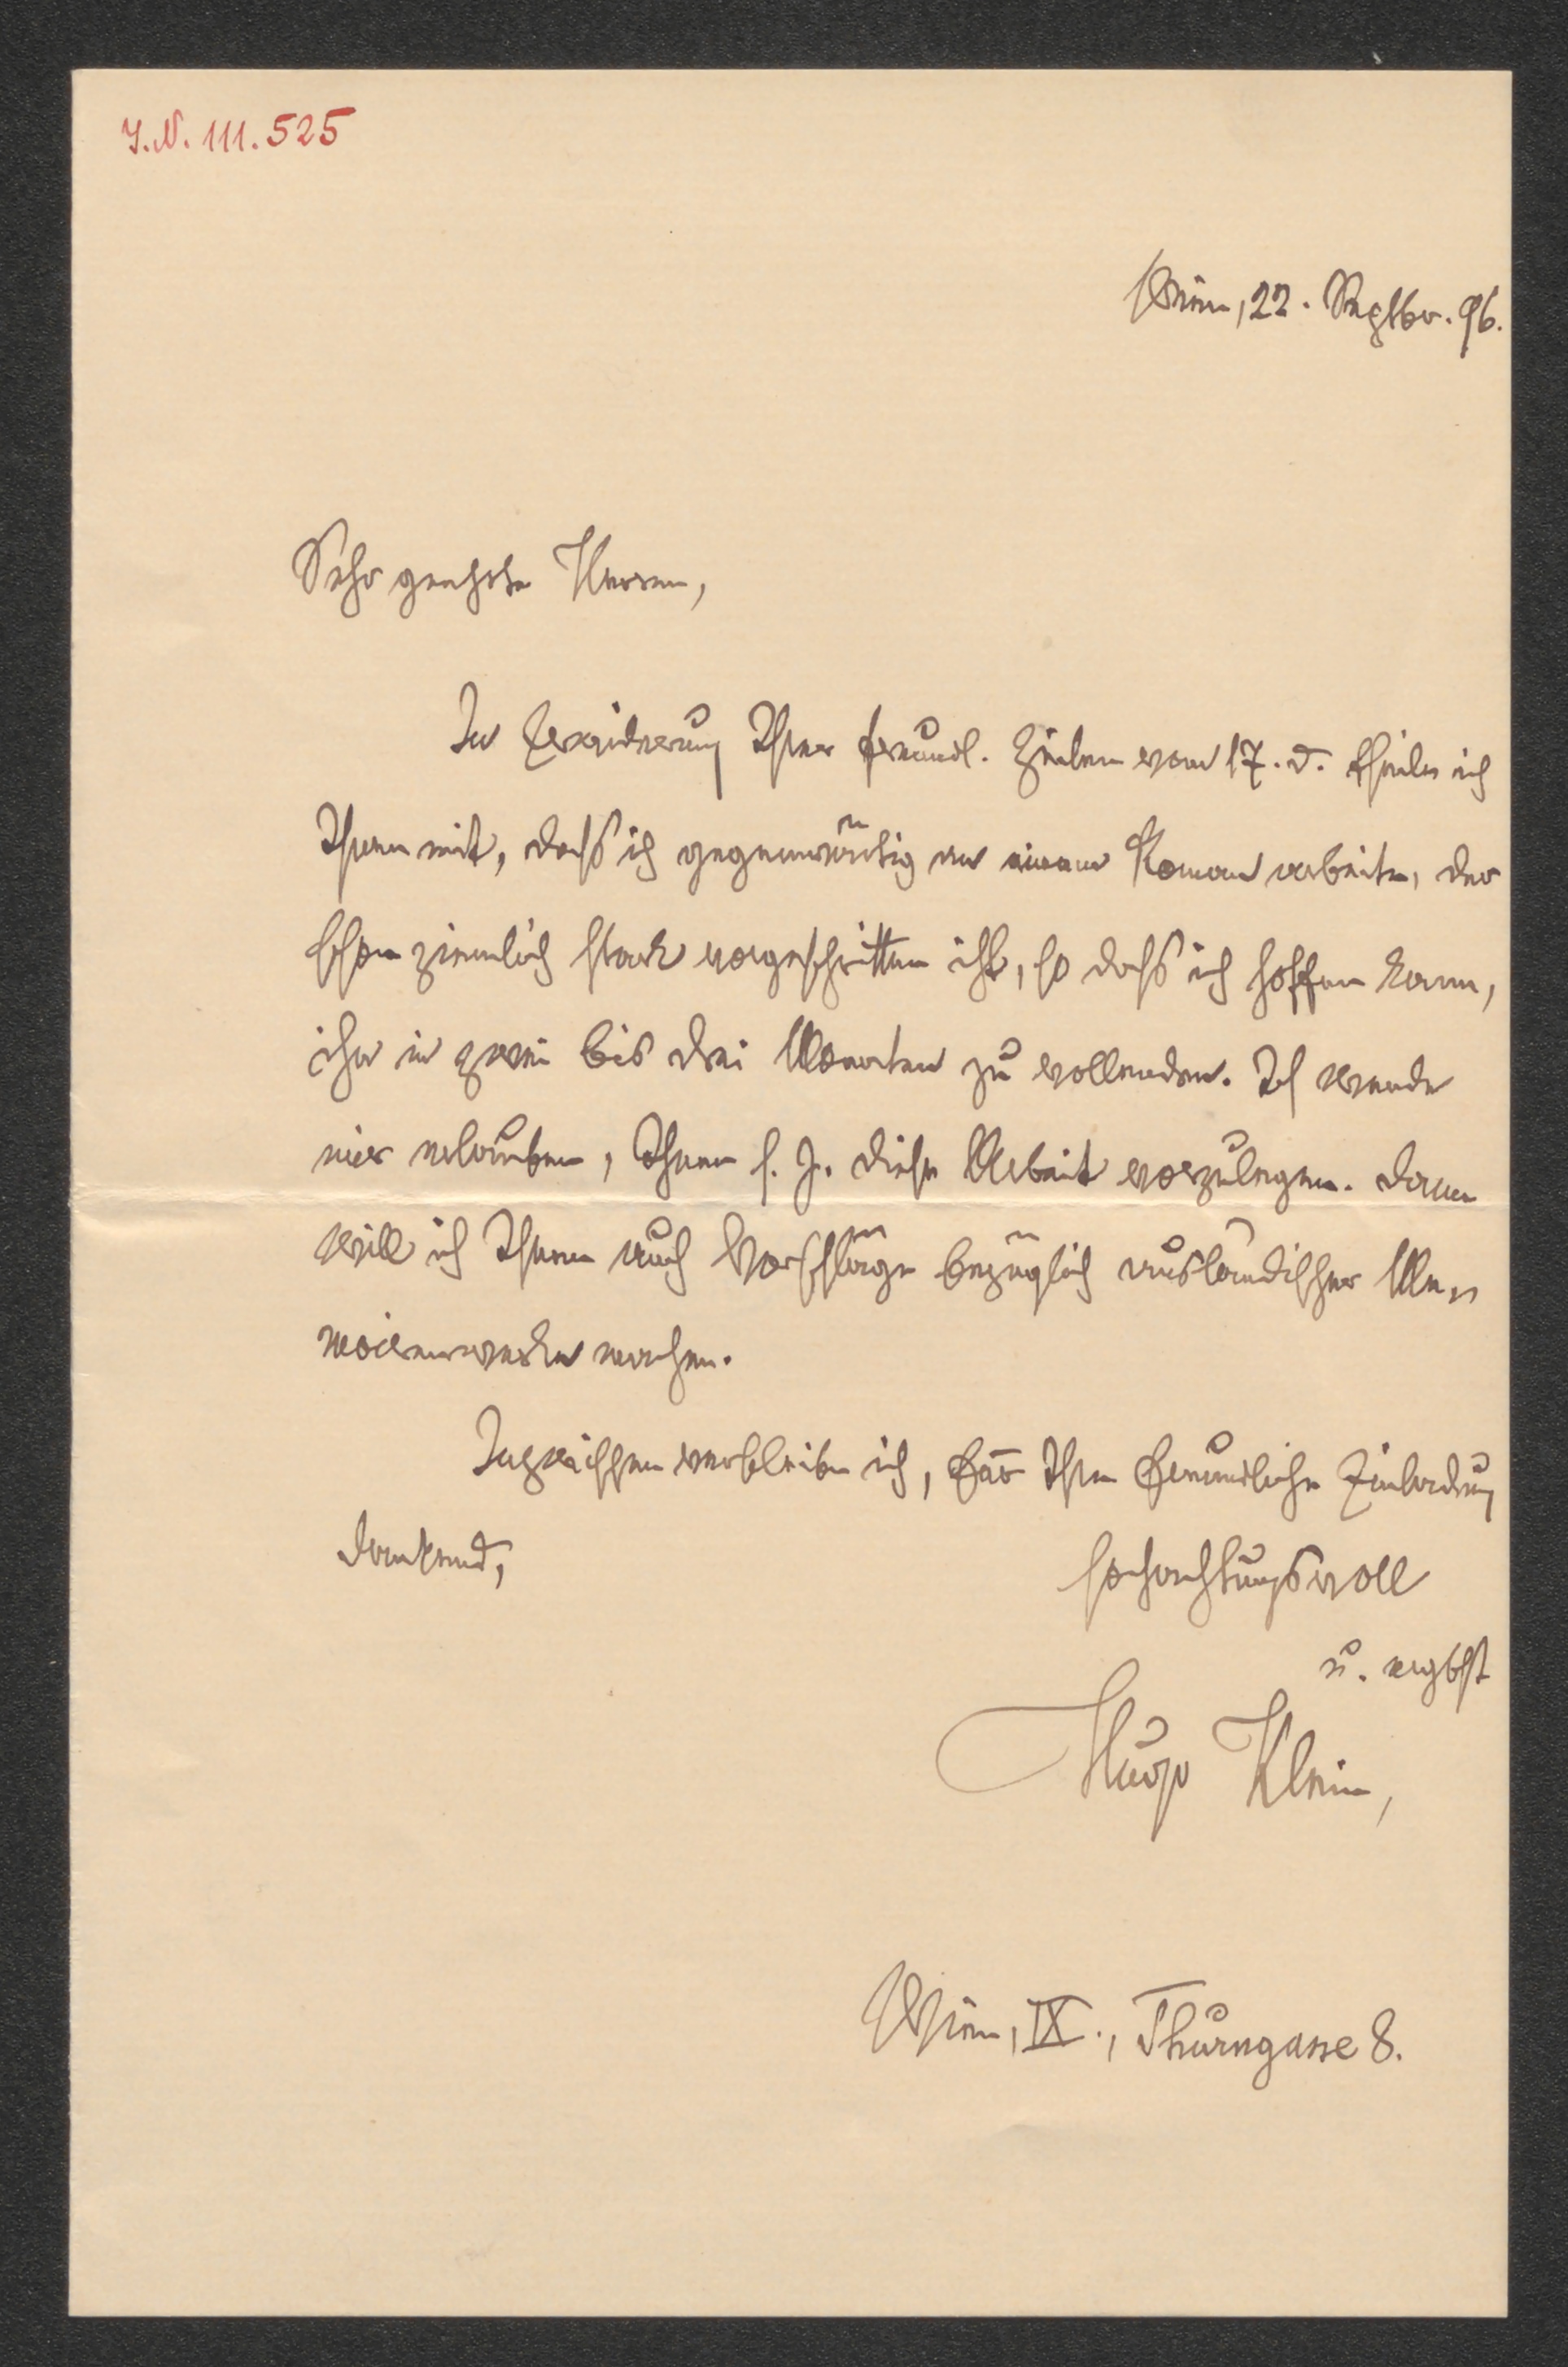 J.N. 111.525
Wien, 22. Septbr. 96.
Sehr geehrte Herren,
In Erwiderung Ihrer freundl. Zeilen vom 17. d. theile ich
Ihnen mit, dass ich gegenwärtig an einem Roman arbeite, der
schon ziemlich stark vorgeschritten ist, so dass ich hoffen kann,
ihn in zwei bis drei Monaten zu vollenden. Ich werde
mir erlauben, Ihnen s. Z. diese Arbeit vorzulegen. Dann
will ich Ihnen auch Vorschläge bezüglich ausländischer Me-
moirenwerke machen.
Inzwischen verbleibe ich, für Ihre freundliche Einladung
dankend,
hochachtungsvoll
u. ergbst
Hugo Klein,
Wien, IX., Thurngasse 8.